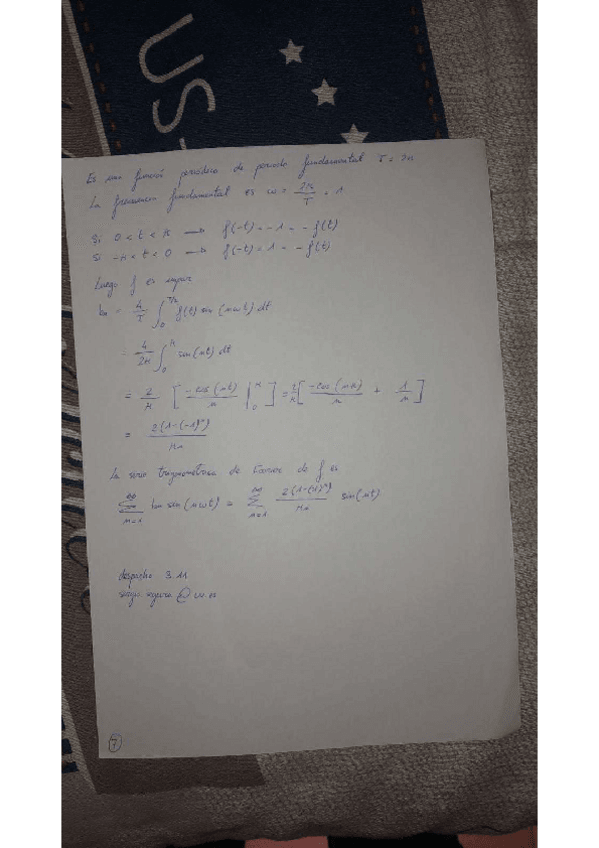 US-
Es una función periódica de periodo fundamental T = 2π
La frecuencia fundamental es ω = 2π/T = 1
Si 0 < t < π → f(-t) = -1 = - f(t)
Si -π < t < 0 → f(-t) = 1 = - f(t)
Luego f es impar
bn = 4/T ∫₀^T/2 f(t) sen (nωt) dt
= 4/2π ∫₀^π sen(nt) dt
= 2/π [ -cos(nt)/n |₀^π ] = 2/π [ -cos(nπ)/n + 1/n ]
= 2(1-(-1)ⁿ)/πn
La serie trigonométrica de Fourier de f es
∑ₙ₌₁^∞ bn sen(nωt) = ∑ₙ₌₁^∞ 2(1-(-1)ⁿ)/πn sen(nt)
despacho 3.11
sergio.segura@uv.es
7